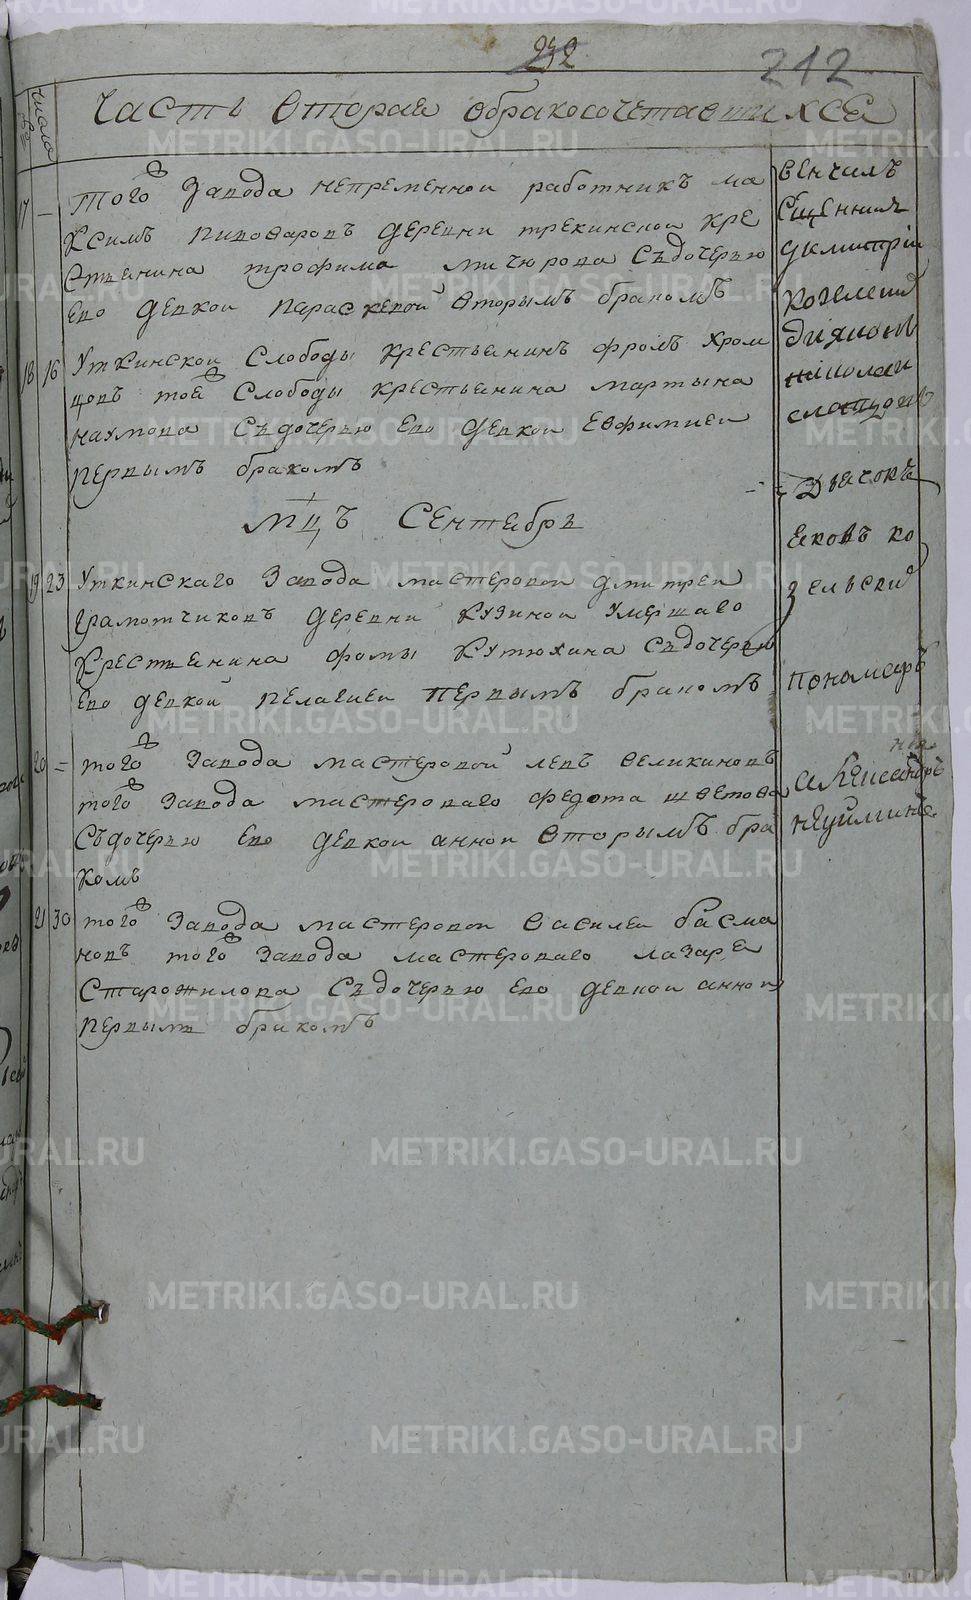 232
212
числа
Часть вторая обракосочетавшихся
17 — того Завода непременной работникъ ма
ксимъ пивоваровъ деревни трекинской кре
стьянина трофима мичюрова Съдочерью
Ево девкой параскевой вторымъ бракомъ
18 16 Уткинской Слободы крестьянинъ фролъ хром
цовъ той Слободы крестьянина мартына
наумова Съдочерью Ево девкой Евфимией
первымъ бракомъ
Мцъ Сентебрь
19 23 Уткинскаго Завода мастеровой дмитрей
грамотчиковъ деревни Кузиной Умершаго
Крестьянина фомы Кутюхина Съдочерью
Ево девкой пелагией первымъ бракомъ
20 = того Завода мастеровой левъ великиновъ
того Завода мастероваго федота шветова
Съдочерью Ево девкой анной вторымъ бра
комъ
21 30 того Завода мастеровой василей басма
новъ того Завода мастероваго лазаря
Старожилова Съдочерью Ево девкой анной
первымъ бракомъ
венчалъ
Сщенникъ
димитрій
Козелской
Діяконъ
николай
слотцовъ
Дьячокъ
Яковъ ко
зельский
пономарь
Александръ
неуйминъ
METRIKI.GASO-URAL.RU